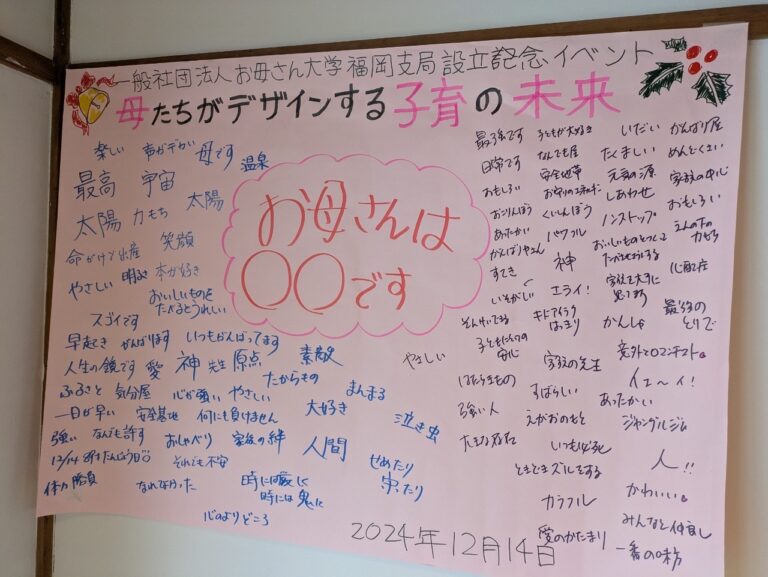 一般社団法人お母さん大学福岡支局設立記念イベント
母たちがデザインする子育の未来
お母さんは
〇〇です
楽しい 声がデカい 母です 温泉
最高 宇宙 太陽
太陽 力もち
命がけで出産 笑顔
やさしい 明るさ 本が好き
おいしいものを
たべるとうれしい
スゴイです
早起き がんばります いつもがんばってます
人生の鏡です 愛 神 先生 原点 素敵
ふるさと 気分屋 心が強い やさしい たからもの まんまる
一日が早い 安全基地 何にも負けません 大好き 泣き虫
強い なんでも許す おしゃべり 家族の絆 人間
それでも不安 せめたり
体力勝負 時には厳しく 守ったり
時には鬼に
心のよりどころ
やさしい
最強です 子どもが大好き いだい がんばり屋
日常です なんでも屋 たくましい めんどくさい
おもしろい 安全地帯 元気の源 家族の中心
おこりんぼう くいしんぼう しあわせ おもしろい
あったかい パワフル ノンストップ えんの下の
力もち
がんばりやさん 神 おいしいものをつくって
すてき 心配症
いそがしい エライ! 家族を大事に
思てます
かんしゃ 最強の
とりで
子どもたちの
安心 家族の先生 意外とロマンチスト
すばらしい イェ〜イ!
強い人 えがおのもと あったかい ジャングルジム
いつも必死
ときどきズルをする 人!!
カラフル かわいい
愛のかたまり みんなと仲良し
一番の味方
2024年12月14日